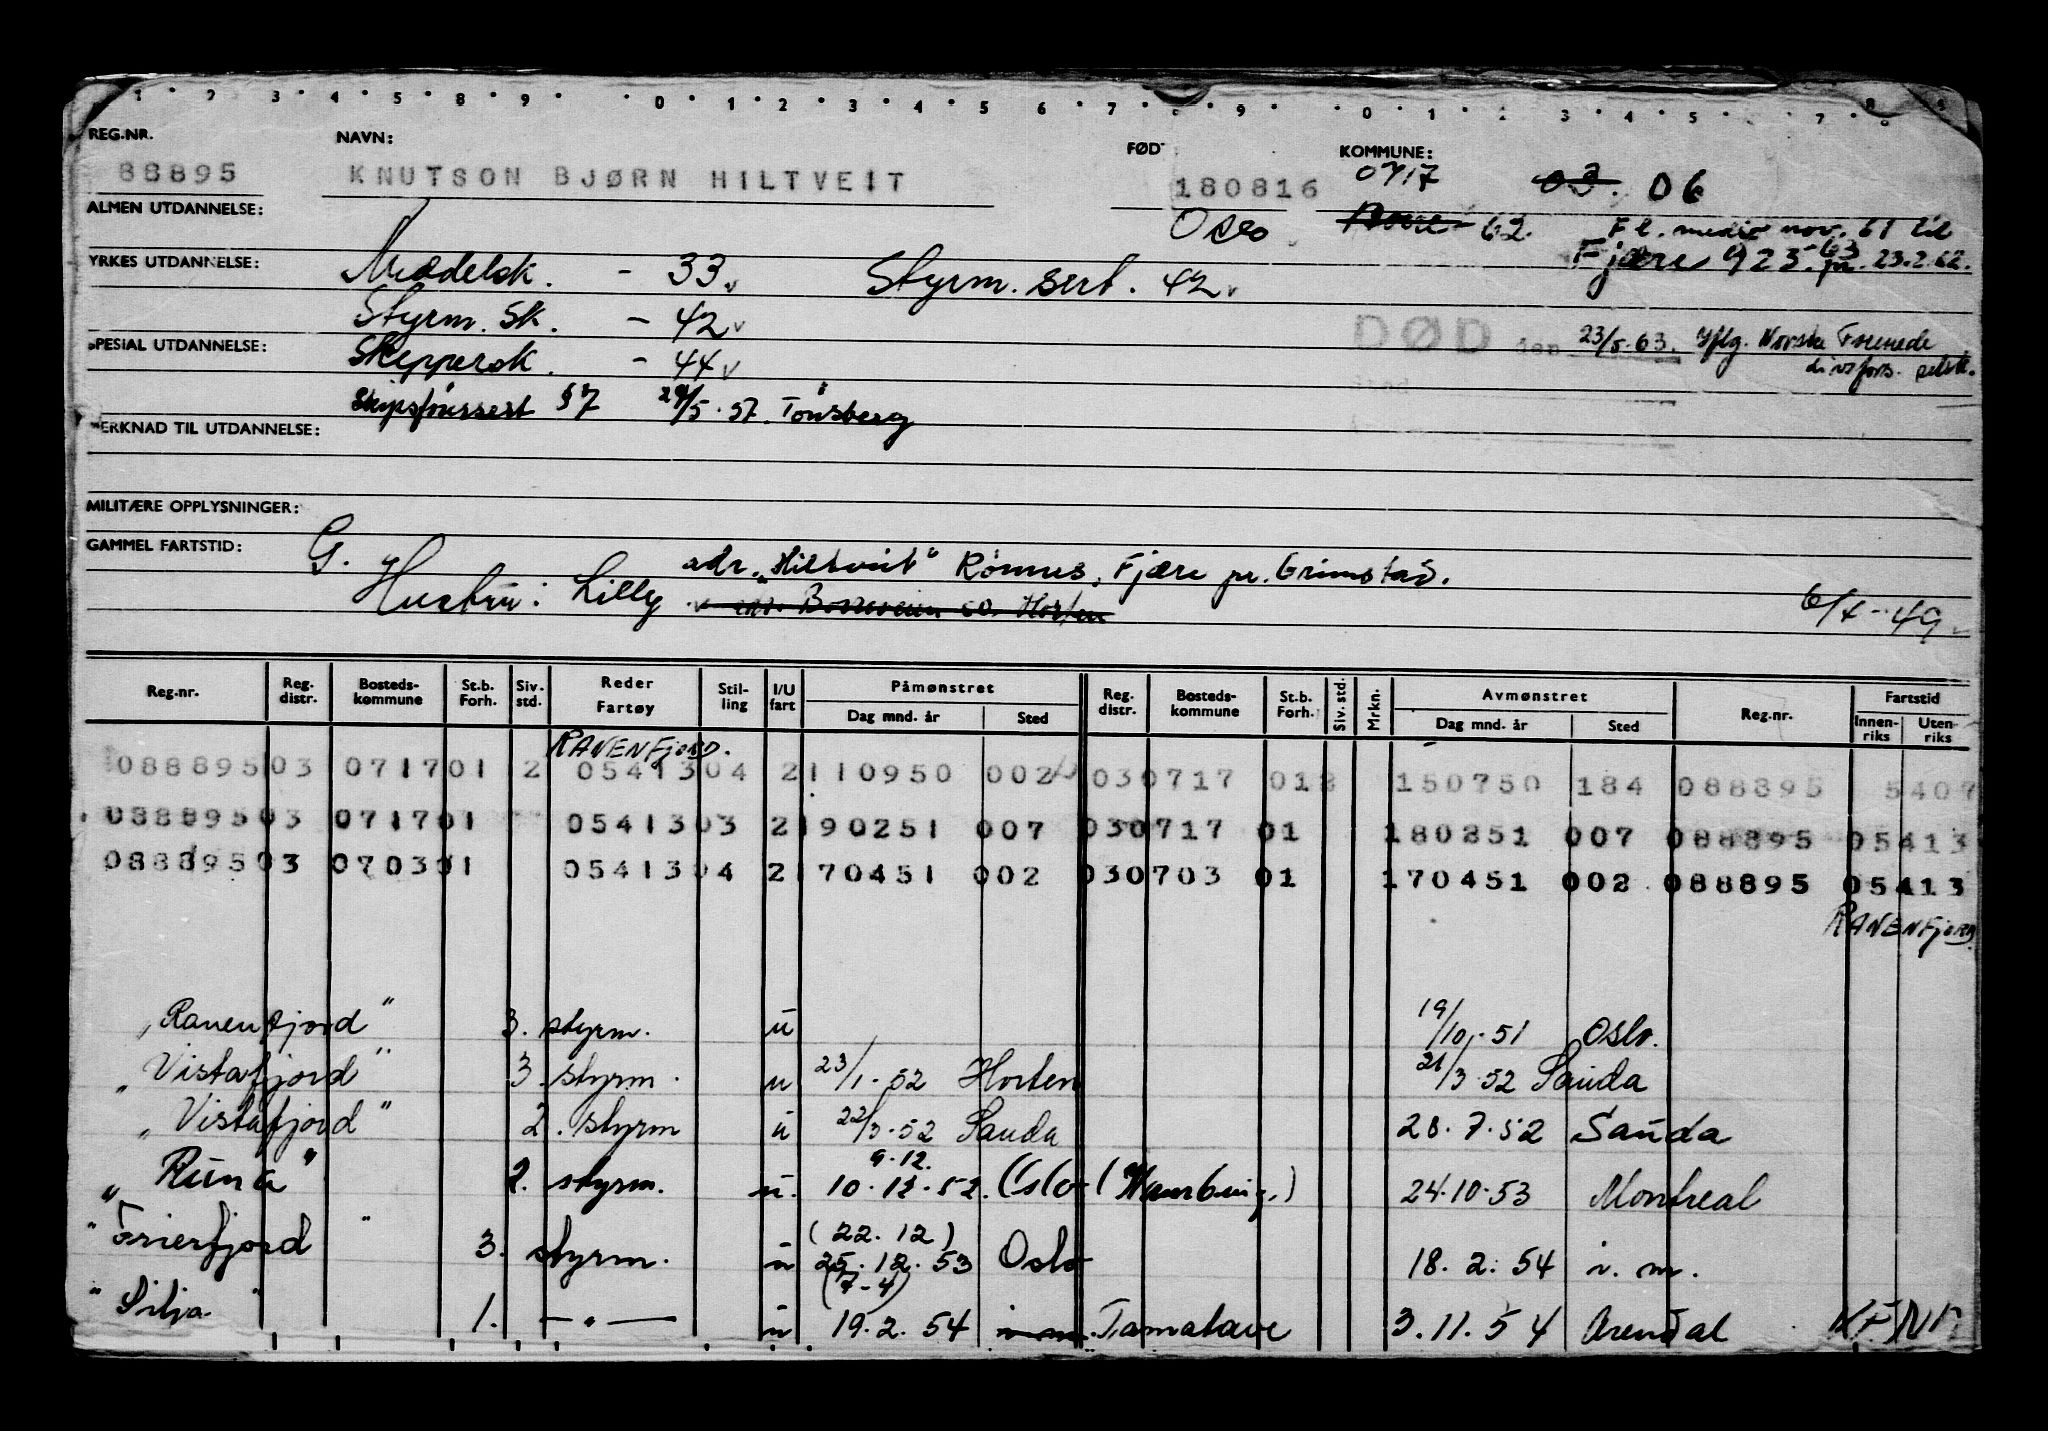 1 2 3 4 5 8 9 0 1 2 3 4 5 6 7 8 9 0 1 2 3 4 5 7 8 8 9
REG.NR. NAVN: FØDT KOMMUNE:
88895 KNUTSON BJØRN HILTVEIT 180816 0717 03. 06
ALMEN UTDANNELSE: Oslo 62. Fl. medio nov. 61 til
YRKES UTDANNELSE: Middelsk. - 33 Styrm. sert. 42 Fjære 923. 63 pr. 23.2.62.
Styrm. sk. - 42
SPESIAL UTDANNELSE: Skippersk. - 44 DØD den 23/5-63. Iflg. Norske Forenede
livsfors. selsk.
Skipsførersert §7 29/5-57. Tønsberg
MERKNAD TIL UTDANNELSE:
MILITÆRE OPPLYSNINGER:
GAMMEL FARTSTID: G. adr. "Hiltveit" Rønnes, Fjære pr. Grimstad.
Hustru: Lilly Horten 6/x-49
Reg.nr. Reg. distr. Bosteds-kommune St.b. Forh. Siv. std. Reder Fartøy Stil-ling I/U fart Påmønstret Reg. distr. Bosteds-kommune St.b. Forh. Siv. std. Mrkn. Avmønstret Reg.nr. Fartstid
Dag mnd. år Sted Dag mnd. år Sted Innen-riks Uten-riks
RANENFJORD.
088895 03 0717 01 2 05413 04 2 110950 002 03 0717 01 150750 184 088895 5407
088895 03 0717 01 05413 03 2 190251 007 03 0717 01 180251 007 088895 05413
088895 03 0703 01 05413 04 2 170451 002 03 0703 01 170451 002 088895 05413
RANENFJORD
"Ranenfjord" 3. styrm. u 19/10-51 Oslo.
"Vistafjord" 3. styrm. u 23/1-52 Horten 21/3-52 Sauda
"Vistafjord" 2. styrm u 22/3-52 Sauda 28.7.52 Sauda
9.12.
"Runa" 2. styrm. u. 10.12.52. Oslo (Hamburg.) 24.10.53 Montreal
(22.12)
"Frierfjord" 3. styrm. u 25.12.53 Oslo 18.2.54 i. m.
(7-4)
"Silja" 1. —"— u 19.2.54 i. m. Tamatave 3.11.54 Arendal